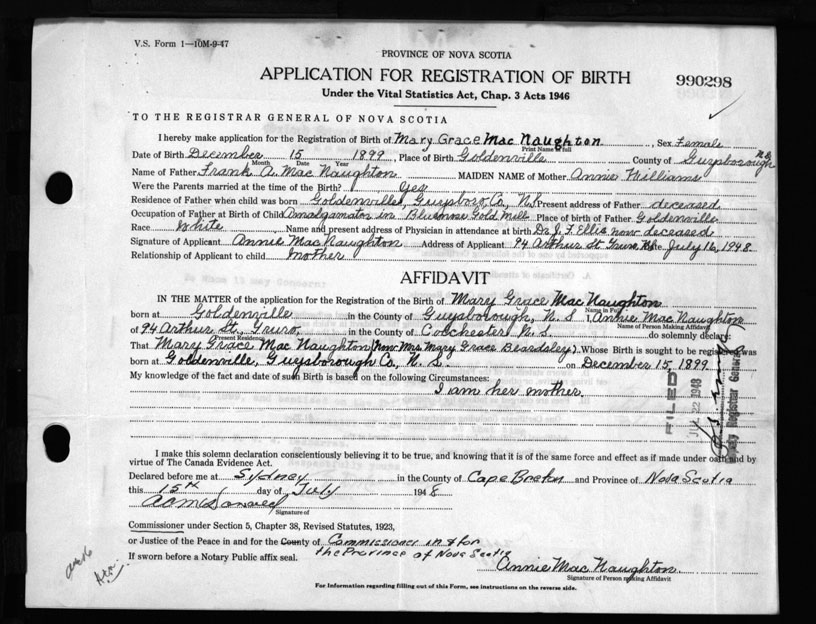 V.S. Form 1—10M-9-47
PROVINCE OF NOVA SCOTIA
APPLICATION FOR REGISTRATION OF BIRTH
990298
Under the Vital Statistics Act, Chap. 3 Acts 1946
TO THE REGISTRAR GENERAL OF NOVA SCOTIA
I hereby make application for the Registration of Birth of Mary Grace Mac Naughton, Sex Female
Print Name in Full
Date of Birth December 15 1899, Place of Birth Goldenville County of Guysborough N.S.
Month Date Year
Name of Father Frank A. Mac Naughton MAIDEN NAME of Mother Annie Williams
Were the Parents married at the time of the Birth? Yes
Residence of Father when child was born Goldenville, Guysboro Co., N.S. Present address of Father deceased
Occupation of Father at Birth of Child Amalgamator in Bluenose Gold Mill Place of birth of Father Goldenville
Race White Name and present address of Physician in attendance at birth Dr. J. F. Ellis, now deceased
Signature of Applicant Annie MacNaughton Address of Applicant 94 Arthur St. Truro, N.S. July 16, 1948.
Relationship of Applicant to child mother
AFFIDAVIT
IN THE MATTER of the application for the Registration of the Birth of Mary Grace Mac Naughton
Name in Full
born at Goldenville in the County of Guysborough, N. S., Annie Mac Naughton
Name of Person Making Affidavit
of 94 Arthur St., Truro, in the County of Colchester, N. S. do solemnly declare:
Present Residence
That Mary Grace Mac Naughton (now Mrs. Mary Grace Beardsley). Whose Birth is sought to be registered was
born at Goldenville, Guysborough Co., N. S. on December 15, 1899
My knowledge of the fact and date of such Birth is based on the following Circumstances:
I am her mother.
FILED
JUL 22 1948
Deputy Registrar General
I make this solemn declaration conscientiously believing it to be true, and knowing that it is of the same force and effect as if made under oath and by
virtue of The Canada Evidence Act.
Declared before me at Sydney in the County of Cape Breton and Province of Nova Scotia
this 15th day of July 1948
Signature of
Commissioner under Section 5, Chapter 38, Revised Statutes, 1923,
or Justice of the Peace in and for the County of Commissioner in & for
the Province of Nova Scotia
If sworn before a Notary Public affix seal.
Annie Mac Naughton.
Signature of Person making Affidavit
For Information regarding filling out of this Form, see instructions on the reverse side.